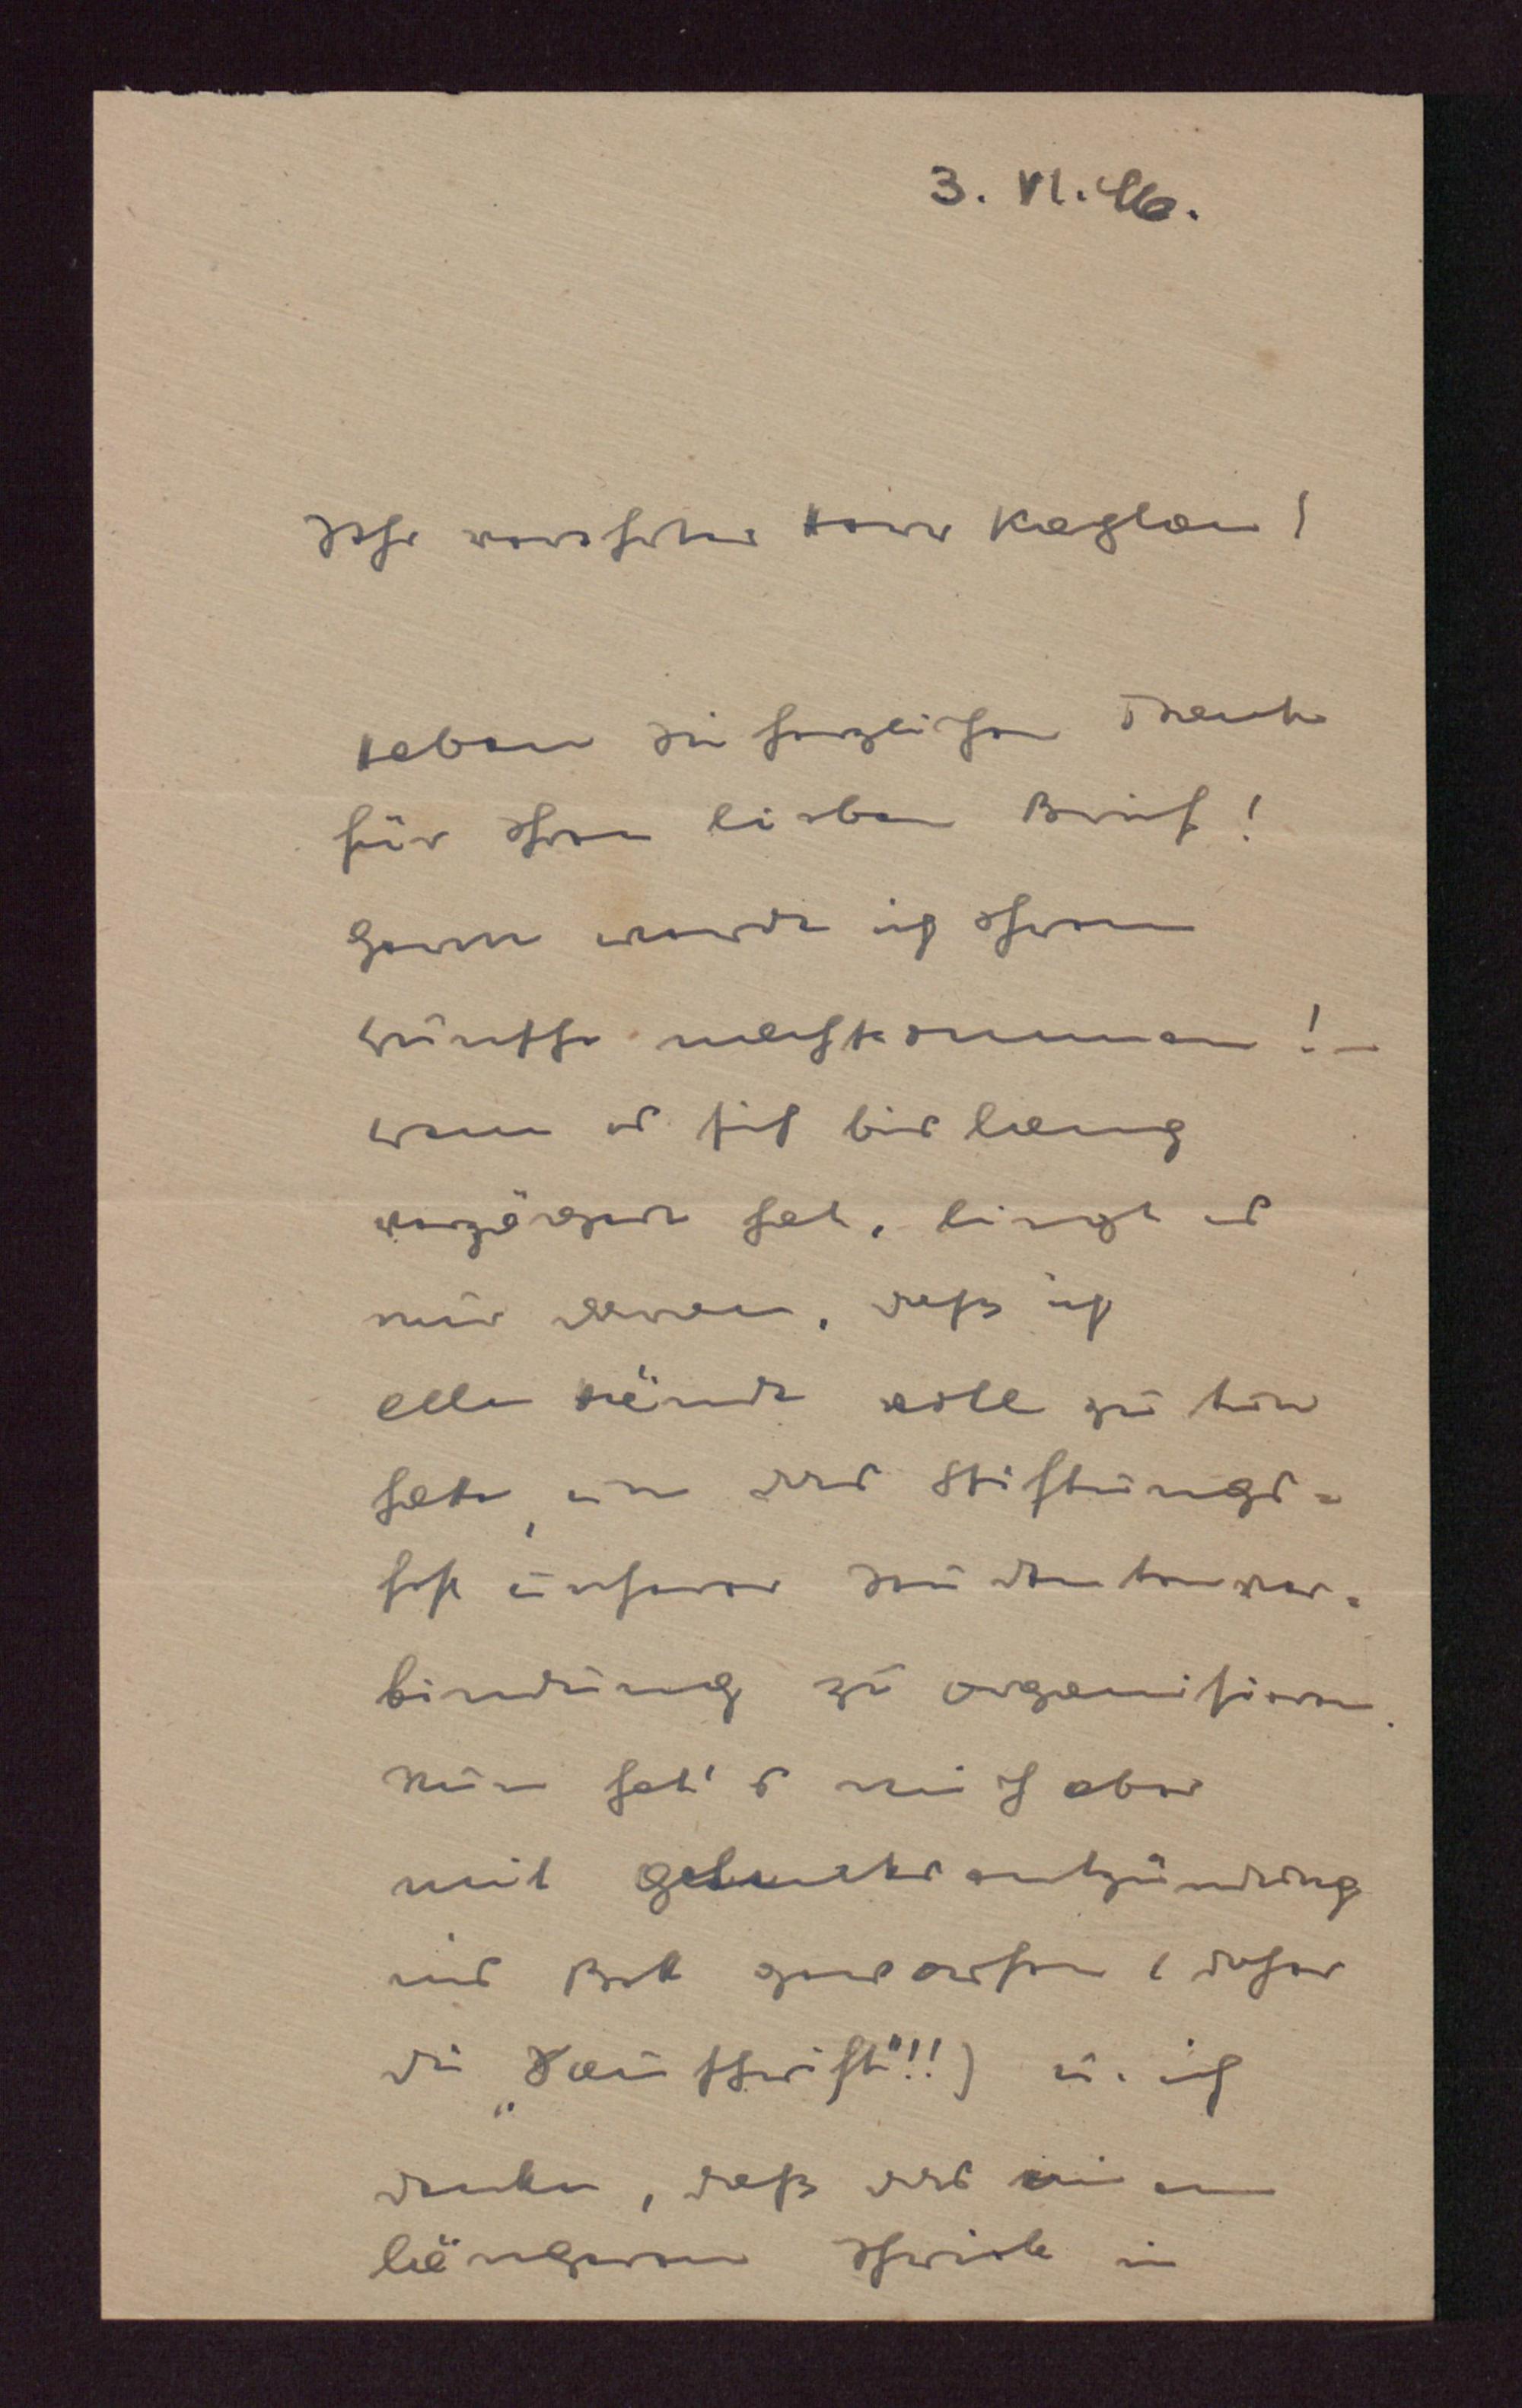 3. VI. 46.
Sehr verehrter Herr Kaplan!
Haben Sie herzlichen Dank
für Ihren lieben Brief!
Gerne werde ich Ihrem
Wunsche nachkommen! –
Wenn es sich bislang
verzögert hat, liegt es
nur daran, daß ich
alle Hände voll zu tun
hatte, um das Stiftungs=
fest unserer Studentenver=
bindung zu organisieren.
Nun hat's mich aber
mit Gelenksentzündung
ins Bett geworfen (daher
die „Sauschrift"!!) u. ich
denke, daß das einen
längeren Schrieb in